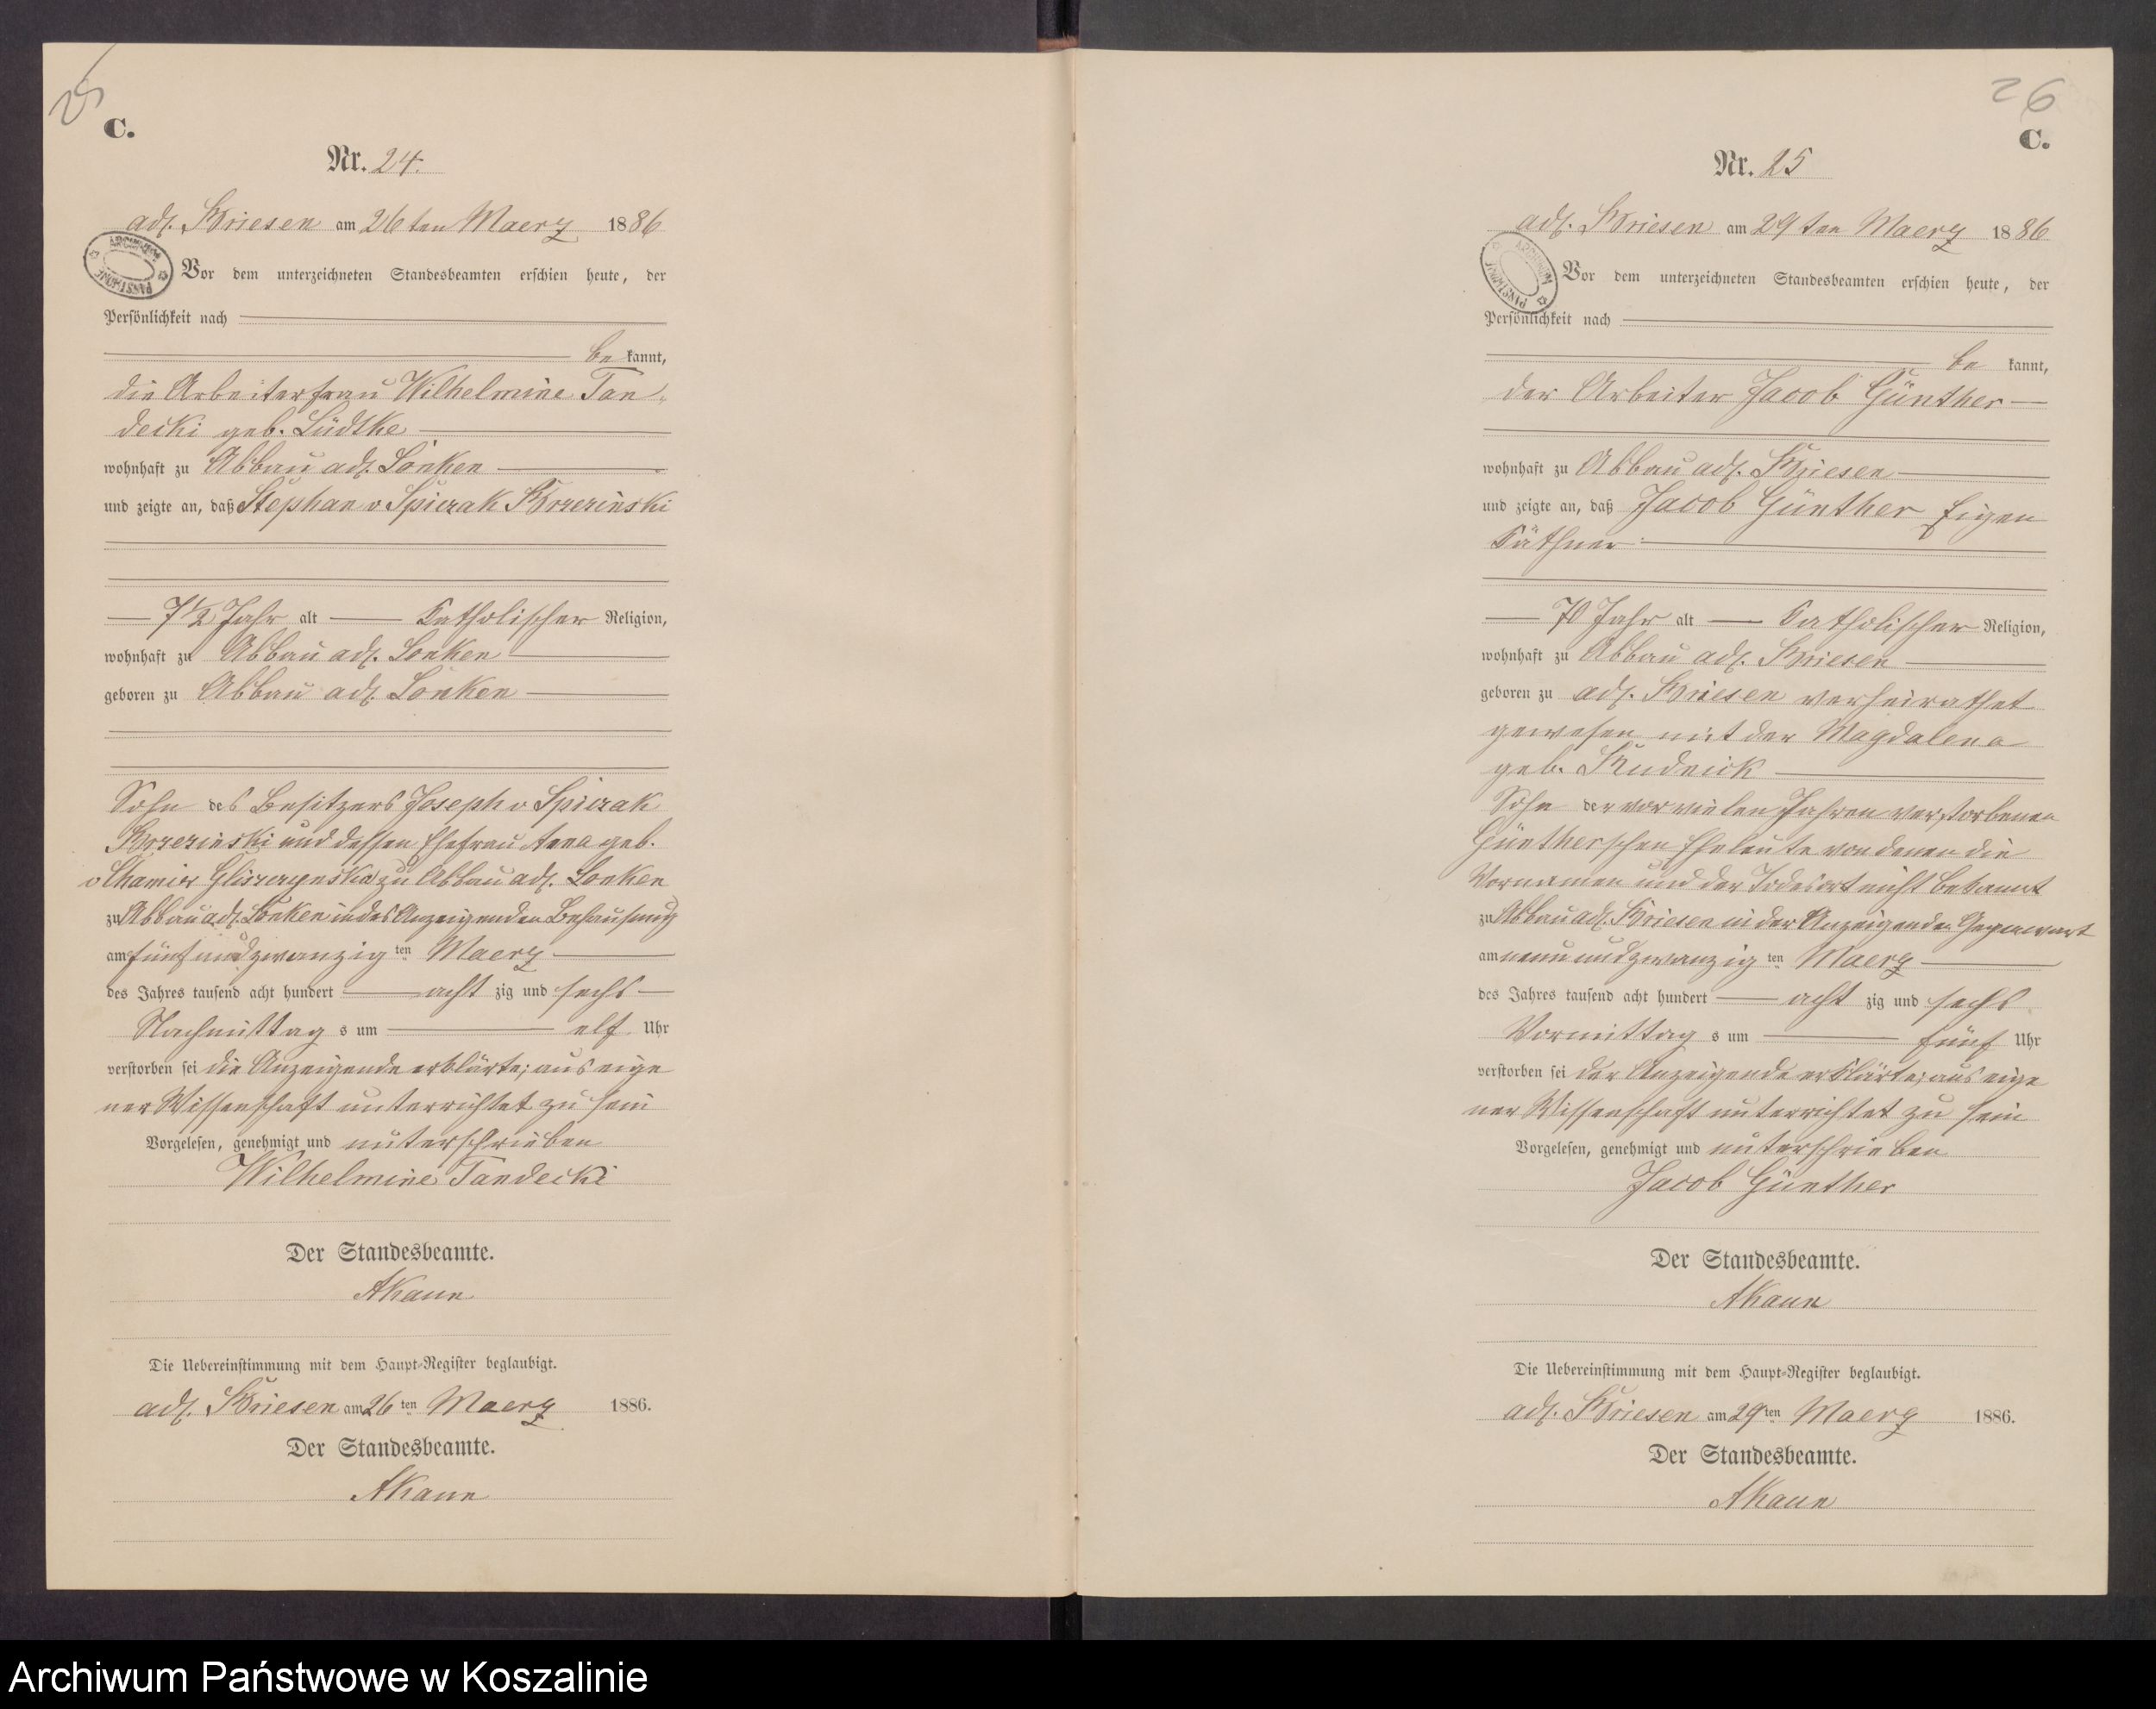 25
C.
Nr. 24.
adl. Briesen am 26ten Maerz 1886
Vor dem unterzeichneten Standesbeamten erschien heute, der
Persönlichkeit nach
be kannt,
die Arbeiterfrau Wilhelmine Tan-
decki geb. Lüdtke
wohnhaft zu Abbau adl. Lonken
und zeigte an, daß Stephan v Spiczak Brzezinski
7 1/2 Jahr alt Katholischer Religion,
wohnhaft zu Abbau adl. Lonken
geboren zu Abbau adl. Lonken
Sohn des Besitzers Joseph v Spiczak
Brzezinski und dessen Ehefrau Anna geb.
v Chamier Gliszczynska zu Abbau adl. Lonken
zu Abbau adl. Lonken in des Anzeigenden Behausung
am fünf und zwanzig ten Maerz
des Jahres tausend acht hundert acht zig und sechs
Nachmittag s um elf Uhr
verstorben sei die Anzeigende erklärte; aus eige
ner Wissenschaft unterrichtet zu sein
Vorgelesen, genehmigt und unterschrieben
Wilhelmine Tandecki
Der Standesbeamte.
AKaun
Die Uebereinstimmung mit dem Haupt-Register beglaubigt.
adl. Briesen am 26 ten Maerz 1886.
Der Standesbeamte.
AKaun
26
C.
Nr. 25
adl. Briesen am 29 ten Maerz 1886
Vor dem unterzeichneten Standesbeamten erschien heute, der
Persönlichkeit nach
be kannt,
der Arbeiter Jacob Günther
wohnhaft zu Abbau adl. Briesen
und zeigte an, daß Jacob Günther Eigen
Käthner
70 Jahr alt Katholischer Religion,
wohnhaft zu Abbau adl. Briesen
geboren zu adl. Briesen verheirathet
gewesen mit der Magdalena
geb. Rudnick
Sohn der vor vielen Jahren verstorbenen
Güntherschen Eheleute von denen die
Vornamen und der Todesort nicht bekannt
zu Abbau adl. Briesen in der Anzeigenden Gegenwart
am neun und zwanzig ten Maerz
des Jahres tausend acht hundert acht zig und sechs
Vormittag s um fünf Uhr
verstorben sei der Anzeigende erklärte; aus eige
ner Wissenschaft unterrichtet zu sein
Vorgelesen, genehmigt und unterschrieben
Jacob Günther
Der Standesbeamte.
AKaun
Die Uebereinstimmung mit dem Haupt-Register beglaubigt.
adl. Briesen am 29 ten Maerz 1886.
Der Standesbeamte.
AKaun
Archiwum Państwowe w Koszalinie